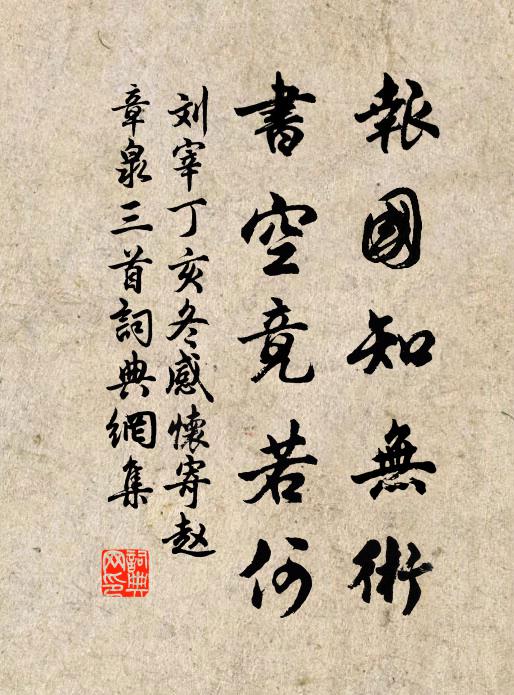 報國知無術
書空竟若何
刘宰丁亥冬感懷寄赵
章泉三首詞典網集
詞典网印